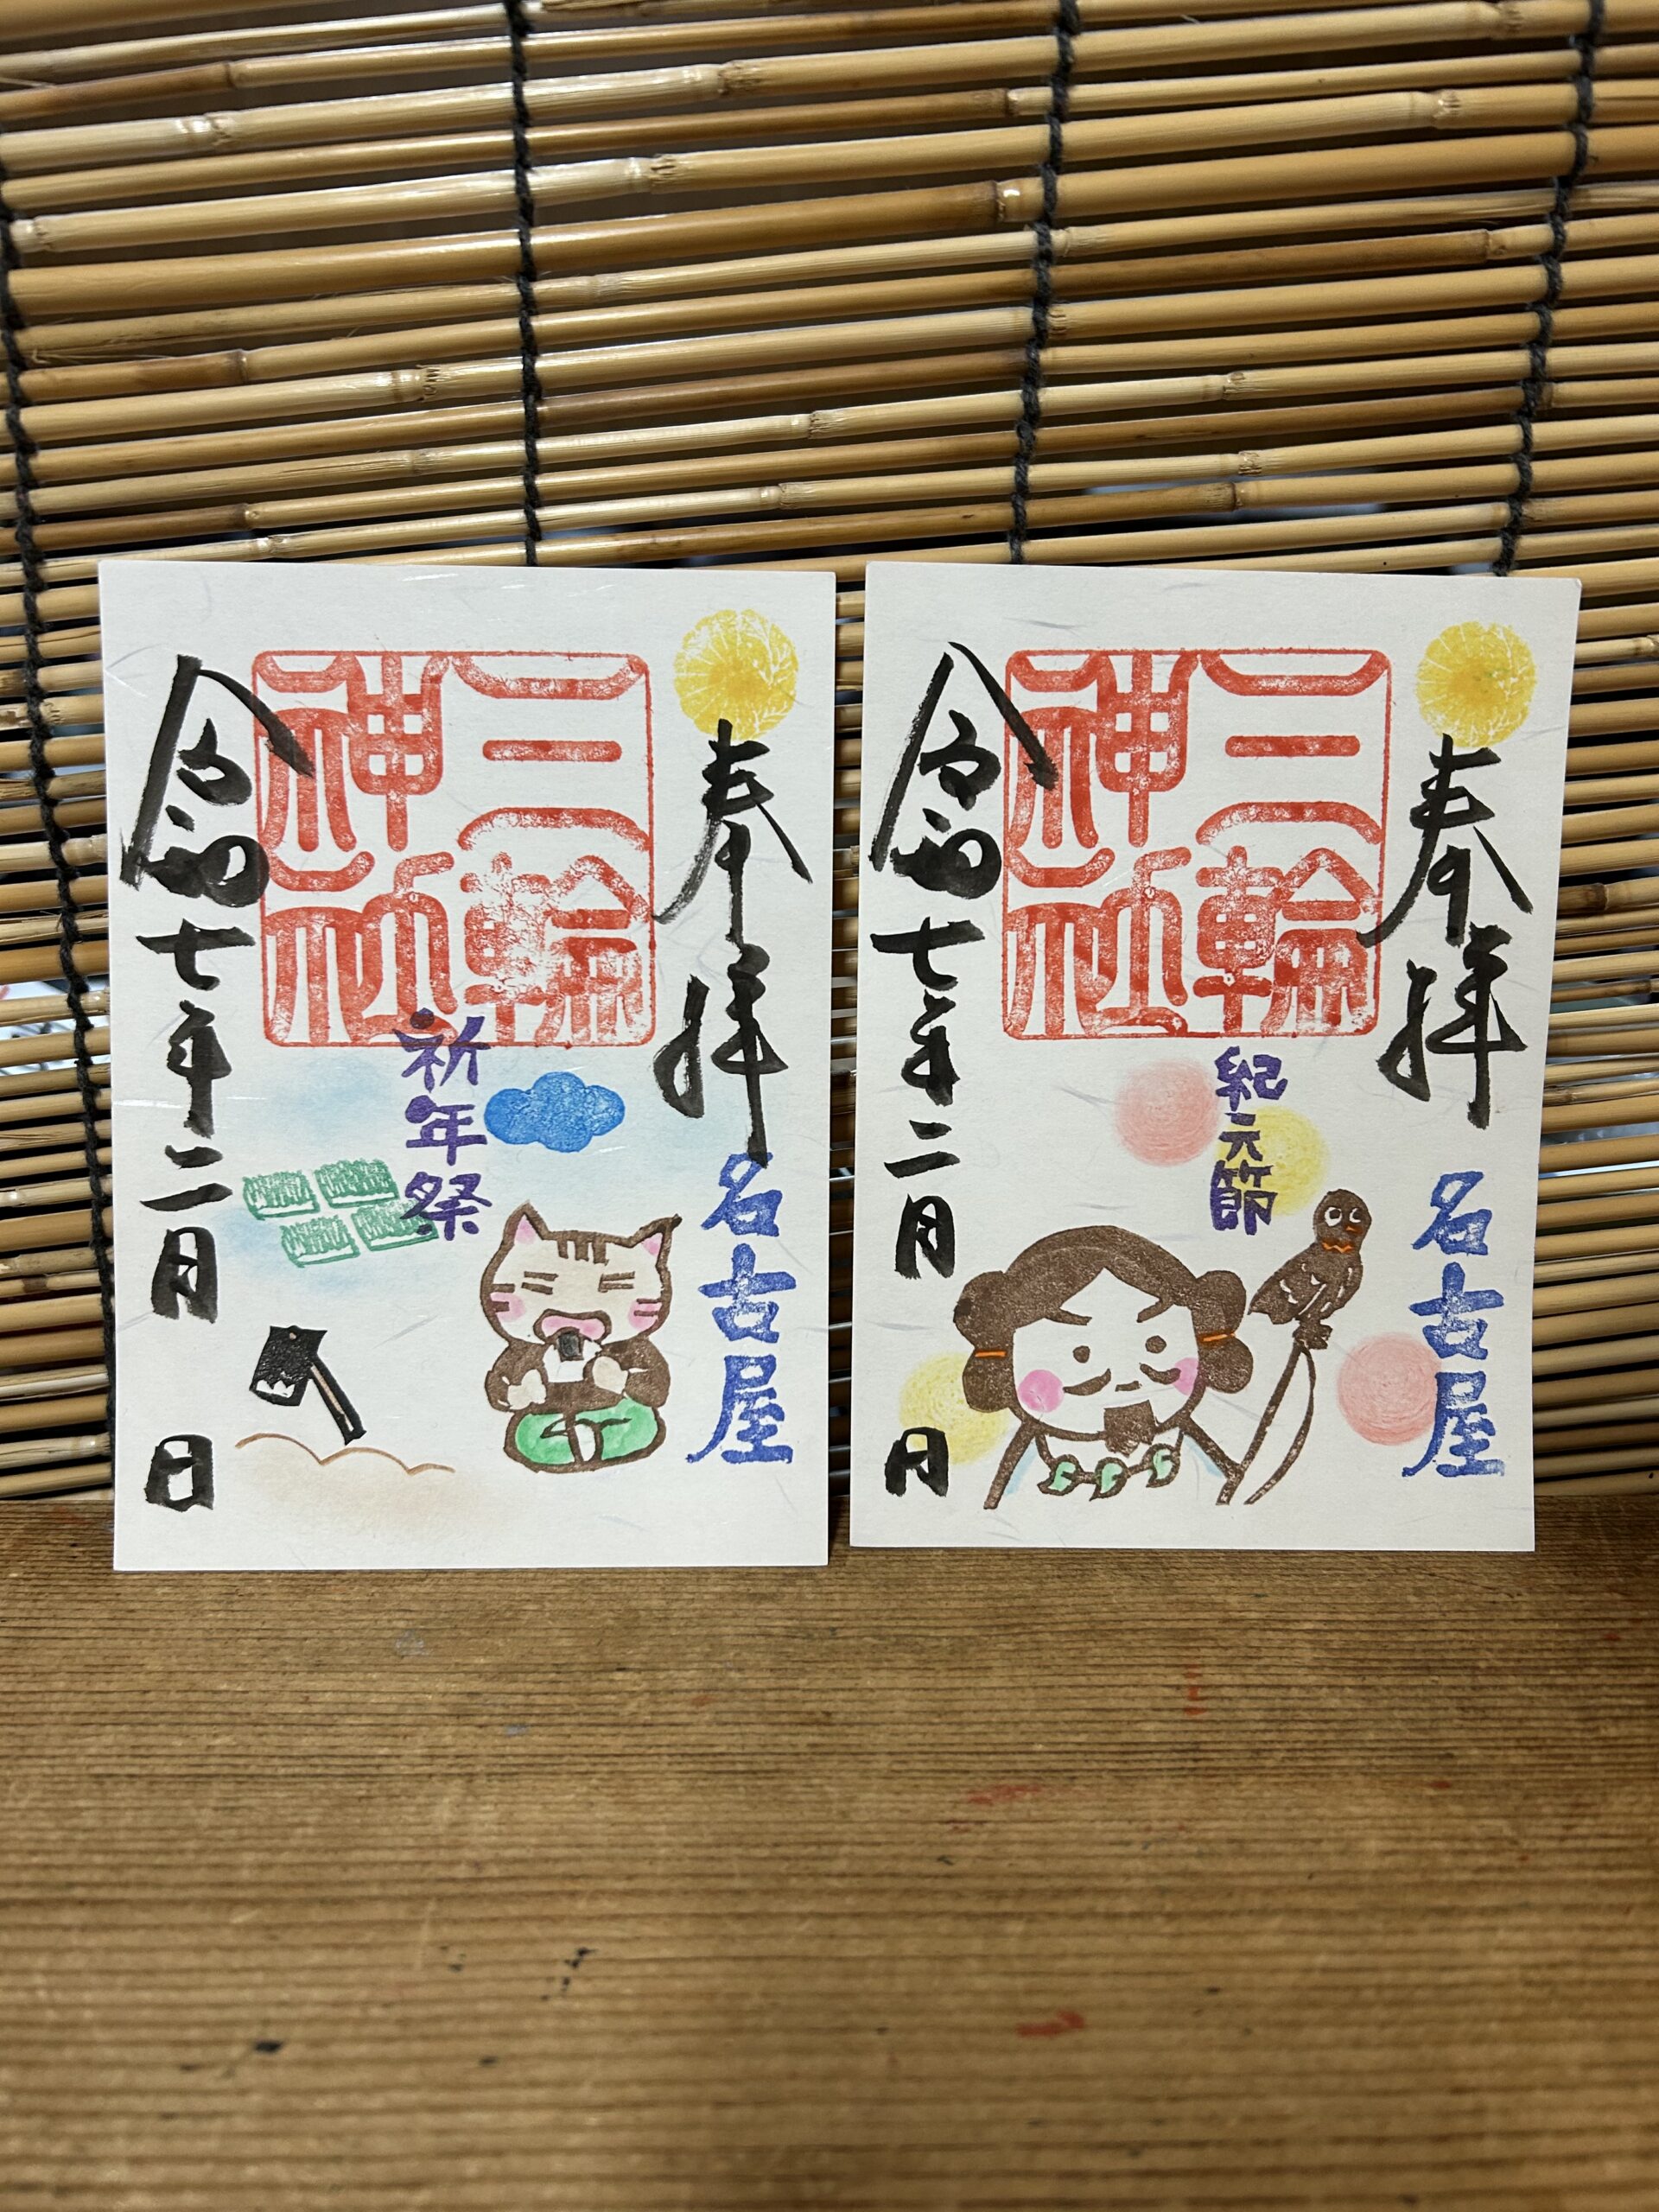 奉拝
名古屋
三輪
神社
祈年祭
令和七年二月 日
奉拝
名古屋
三輪
神社
紀元節
令和七年二月 日